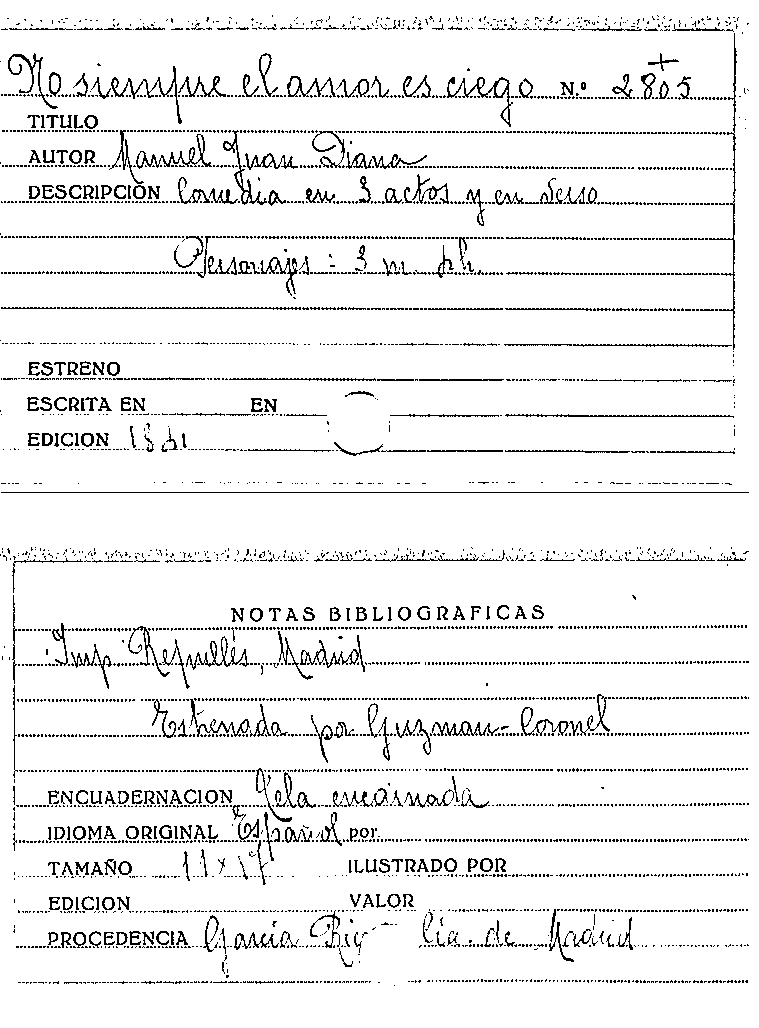 No siempre el amor es ciego N.º 2805
TITULO
AUTOR Manuel Juan Diana
DESCRIPCIÓN Comedia en 3 actos y en verso
Personajes: 3 m. ph.
ESTRENO
ESCRITA EN EN
EDICION
NOTAS BIBLIOGRAFICAS
Imp Repullés, Madrid
Estrenada por Guzman-Coronel
ENCUADERNACION Tela encarnada
IDIOMA ORIGINAL Español por
TAMAÑO 11x17 ILUSTRADO POR
EDICION VALOR
PROCEDENCIA García Rig Cía. de Madrid